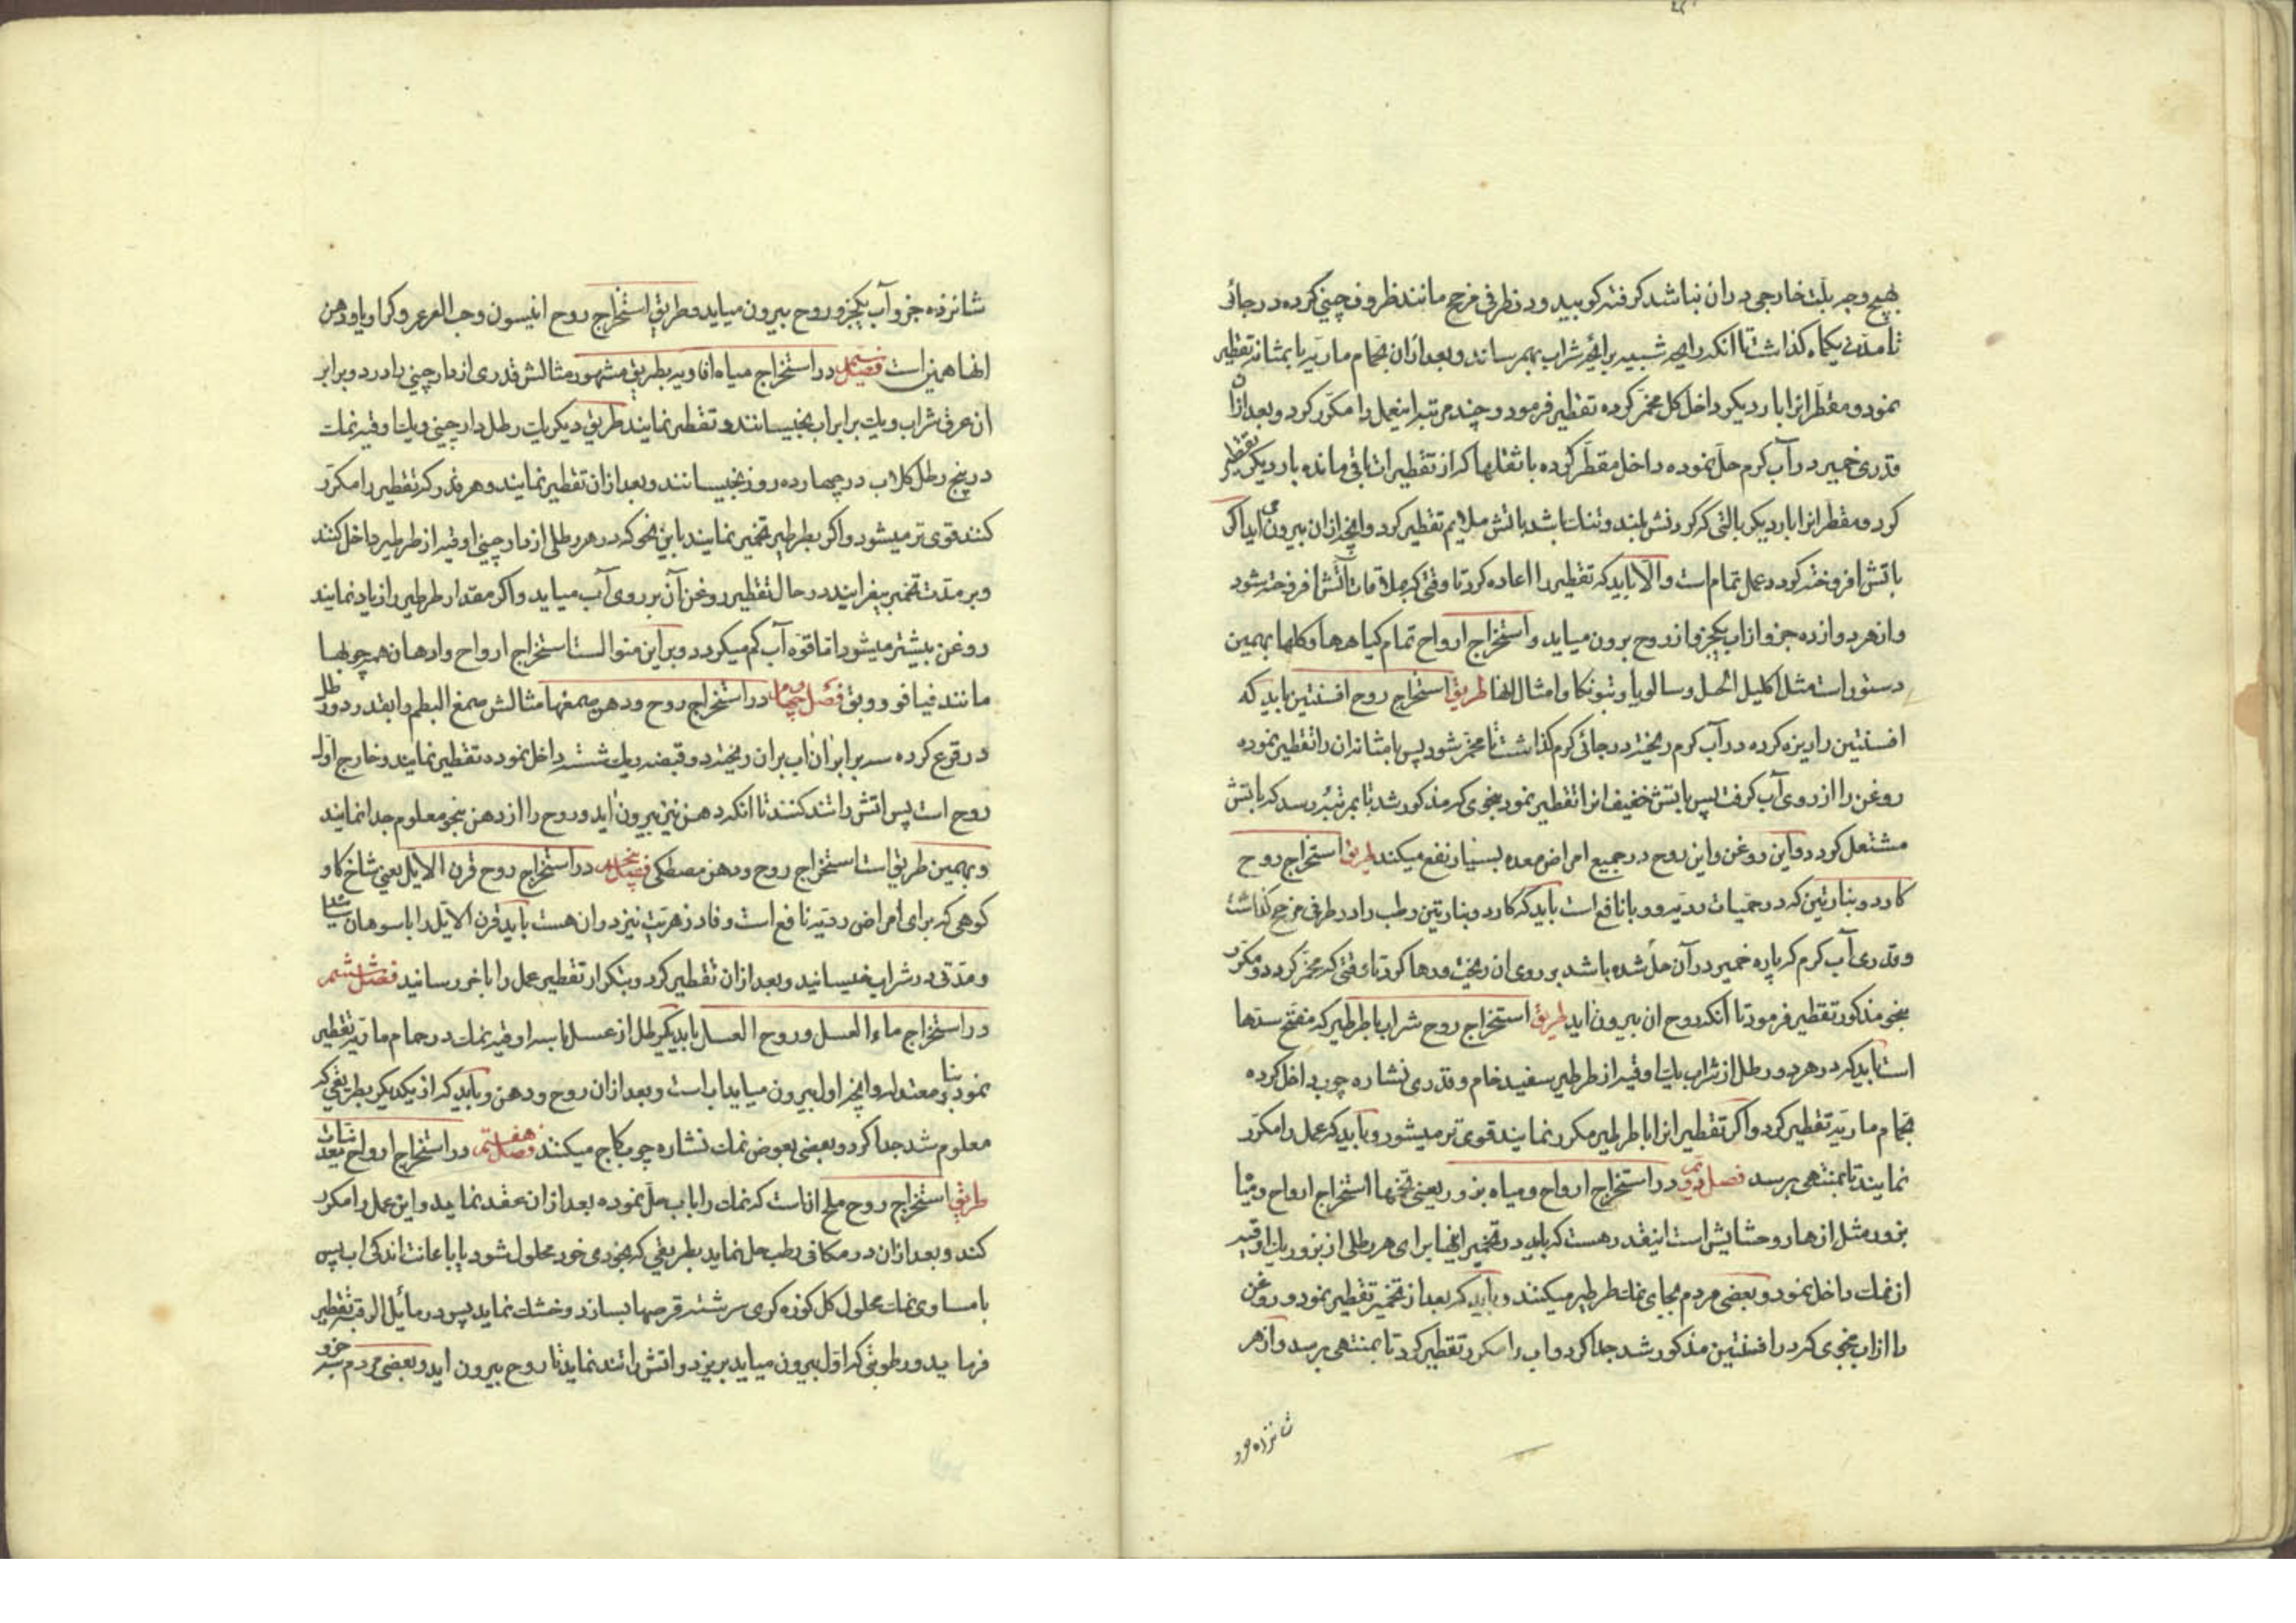 بهیچ وجه بلت خارجی دران نباشد کرفته کوبید و در ظرفی مزجج مانند ظروف چینی کرده در جائی
تا مدّت یکماه کذاشت تا انکه رایحه شبیه برایحهٔ شراب بهم رساند و بعد ازان بحمام ماریّه یا بمثانه تقطیر
نمود و مقطر انرا بار دیکر داخل کل مخمر کرده تقطیر فرمود و چند مرتبه اینعمل را مکرّر کرد و بعد ازان
قدری خمیر در آب کرم حل نموده داخل مقطر کرده با ثقلها که از تقطیرات باقی مانده بار دیکر تقطیر
کرد و مقطر انرا بار دیکر بالتی که کردنش بلند و تنک باشد باتش ملایم تقطیر کرد و انچه ازان بیرون می اید اکر
باتش افروخته کردد عمل تمام است والا باید که تقطیر را اعاده کرد تا وقتی که بملاقات آتش افروخته شود
و از هر دوازده جزو از اب یکجزو از روح برون میاید و استخراج ارواح تمام کیاهها و کلها بهمین
دستور است مثل اکلیل الجبل و سالویا و بتونکا و امثال انها طریق استخراج روح افسنتین باید که
افسنتین را ریزه کرده در آب کرم ریخته در جائی کرم کذاشت تا مخمر شود پس با مثانه ان را تقطیر نموده
روغن را از روی آب کرفت پس باتش خفیف انرا تقطیر نمود بنحوی که مذکور شد تا بمرتبهٔ رسد که باتش
مشتعل کردد و این روغن و این روح در جمیع امراض معده بسیار نفع میکند طریق استخراج روح
کاردوبنارتین که در حمیات ردیه و وبا نافع است باید که کاردوبنارتین رطب را در ظرفی مزجج کذاشت
و قدری آب کرم که پاره خمیر در آن حل شده باشد بر روی ان ریخت و رها کرد تا وقتی که مخمر کردد و مکرّر
بنحو مذکور تقطیر فرمود تا انکه روح ان بیرون اید طریق استخراج روح شراب با طرطیر که مفتح سدها
است باید که در هر دو رطل از شراب یک اوقیه از طرطیر سفید خام و قدری نشاره چوب داخل کرده
بحمام ماریّه تقطیر کرد و اکر تقطیر انرا با طرطیر مکرر نمایند قوی تر میشود و باید که عمل را مکرّر
نمایند تا بمنتهی برسد فصل دویم در استخراج ارواح و میاه بزور یعنی تخمها استخراج ارواح و میاه
بزور مثل ازهار و حشایش است اینقدر هست که باید در تخمیر انها برای هر رطلی از بزور یک اوقیه
از نمک داخل نمود و بعضی مردم بجای نمک طرطیر میکنند و باید که بعد از تخمیر تقطیر نمود و روغن
را از اب بنحوی که در افسنتین مذکور شد جدا کرد و اب را مکرر تقطیر کرد تا بمنتهی برسد و از هر
شانزده جزو
شانزده جزو آب یکجزو روح بیرون میاید و طریق استخراج روح انیسون وحب العرعر و کراویا و دهن
انها همین است فصل سیّم در استخراج میاه افاویه بطریق مشهور مثالش قدری از دارچینی را در دو برابر
ان عرق شراب و یک برابر اب بخیسانند و تقطیر نمایند طریق دیکر یک رطل دارچینی و یک اوقیه نمک
در پنج رطل کلاب در چهارده روز بخیسانند و بعد ازان تقطیر نمایند و هر قدر که تقطیر را مکرّر
کنند قوی تر میشود و اکر بطرطیر تخمیر نمایند باین نحو که در هر رطلی از دارچینی اوقیه از طرطیر داخل کنند
و بر مدّت تخمیر بیفزایند در حال تقطیر روغن آن بر روی آب میاید و اکر مقدار طرطیر را زیاد نمایند
روغن بیشتر میشود اما قوّه آب کم میکردد و بر این منوالست استخراج ارواح و ادهان همه چوبها
مانند فیافور و بق فصل چهارم در استخراج روح و دهن صمغها مثالش صمغ البطم را بقدر دو رطل
در قرع کرده سه برابر آن اب بران ریخته دو قبضه ریک شسته داخل نموده تقطیر نمایند و خارج اول
روح است پس اتش را تند کنند تا انکه دهن نیز بیرون اید و روح را از دهن بنحو معلوم جدا نمایند
و بهمین طریق است استخراج روح و دهن مصطکی فصل پنجم در استخراج روح قرن الایّل یعنی شاخ کاو
کوهی که برای امراض ردیّه نافع است و فادزهریت نیز دران هست باید قرن الایّل را با سوهان سائید
و مدّتی در شراب خیسانید و بعد ازان تقطیر کرد و بتکرار تقطیر عمل را باخر رسانید فصل ششم
در استخراج ماء العسل و روح العسل باید یکرطل از عسل با سه اوقیه نمک در حمام ماریّه تقطیر
نمود بنار معتدل و انچه اول بیرون میاید اب است و بعد ازان روح و دهن و باید که از یکدیکر بطریقی که
معلوم شد جدا کرد و بعضی بعوض نمک نشاره چوب کاج میکنند فصل هفتم در استخراج ارواح معدنیات
طریق استخراج روح ملح انست که نمک را باب حل نموده بعد ازان عقد نماید و این عمل را مکرر
کند و بعد ازان در مکانی رطب حل نماید بطریقی که بخودی خود محلول شود یا باعانت اندکی اب پس
با مساوی نمک محلول کل کوزه کری سرشته قرصها بسازد و خشک نماید پس در مائل الرقبه تقطیر
فرماید و رطوبتی که اول بیرون میاید بریزد و اتش را تند نماید تا روح بیرون اید و بعضی مردم سه جزو